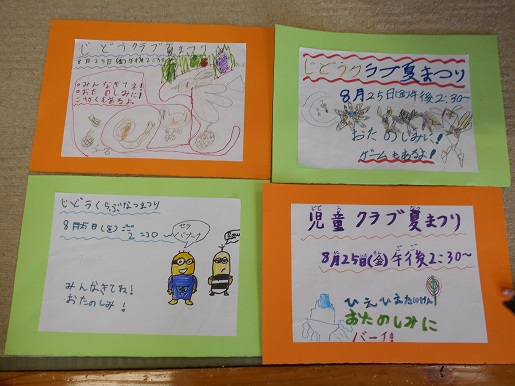 じどうクラブ夏まつり
8月25日(金)午後2:30〜
みんなきてね!
おたのしみに!
じどうクラブ夏まつり
8月25日(金)午後2:30〜
おたのしみに!
ゲームもあるよ!
じどうくらぶなつまつり
8月5日(金)ごご
2:30
みんなきてね!
おたのしみ!
児童クラブ夏まつり
8月25日(金)午後2:30〜
ひえひえたいけん!
おたのしみに